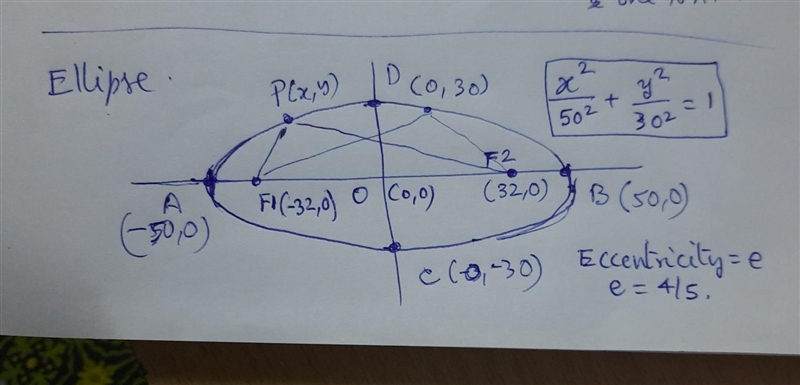 Ellipse.
P(x,y)
D (0,30)
x²/50² + y²/30² = 1
F2
A
(-50,0)
F1(-32,0)
O (0,0)
(32,0)
B (50,0)
C (-0,-30)
Eccentricity = e
e = 4/5.